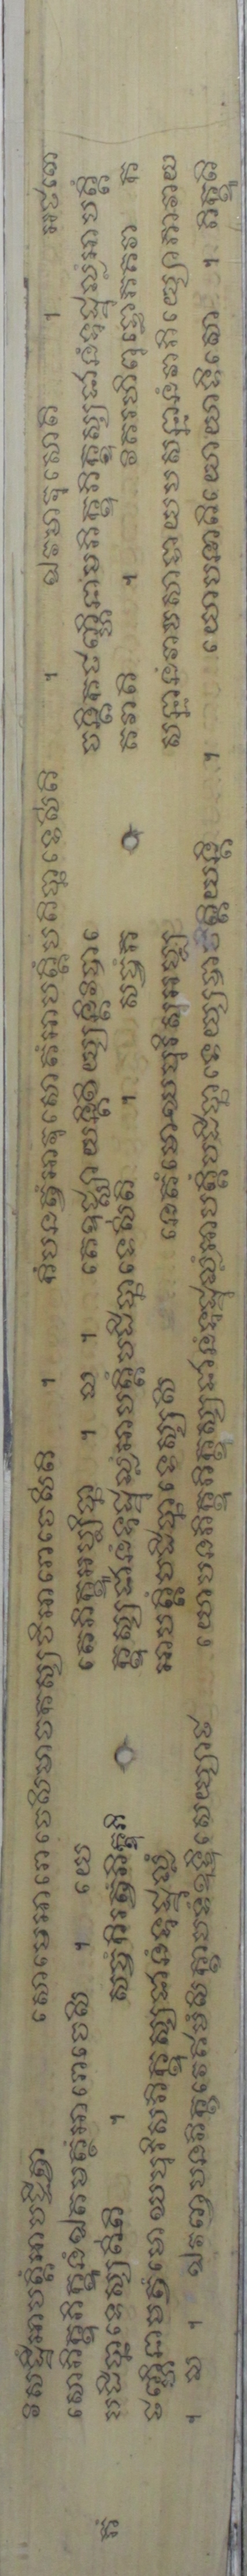 វិសដ្ឋិំអាបត្តិំអាបជ្ជិត្វា សោមេអារោចេសិមាចកស្សចិអារោចេសីតិ ។ កិំបនត្វំអាវុសោតំអាបត្តិំបដិច្ឆាទេសីតិ ។ ឯវមាវុសោតិ ។ អថខោ
សោភិក្ខុភិក្ខូនំឯតមត្ថំអារោចេសិ ។ យេ តេភិក្ខូអប្បិច្ឆា ។ ល ។ តេឧជ្ឈាយន្តិខិយ្យន្តិវិបាចេ ចន្តិកថញ្ហិនាមភិក្ខុភិក្ខុស្សជានំទុដ្ឋុល្លំអាបត្តិំ
បដិច្ឆាទេស្សតីតិ ។ សច្ចំកិរត្វំភិក្ខុភិ ក្ខុស្សជានំទុដ្ឋុល្លំអាបត្តិំបដិច្ឆាទេសីតិ ។ សច្ចំភ គវាតិ ។ វិគរហិពុទ្ធោភគវា ក
ថញ្ហិនាមត្វំមោឃបុរិសភិក្ខុស្សជានំទុដ្ឋុល្លំ អាបត្តិំបដិច្ឆាទេស្សសិ នេតំមោឃបុរិសអប្ប សន្នានំវាបសាទាយបសន្នានំវាភិយ្យោភាវាយ
។ ល ។ ឯវញ្ចបនភិក្ខវេឥមំសិក្ខាបទំឧទ្ទិសេយ្យាថ យោបនភិក្ខុភិក្ខុស្សជានំទុដ្ឋុល្លំអាបត្តិំបដិច្ឆាទេយ្យបាចិត្តិយន្តិ ។ យោបនាតិយោយាទិសោ ។ ភិក្ខូតិ
កំ